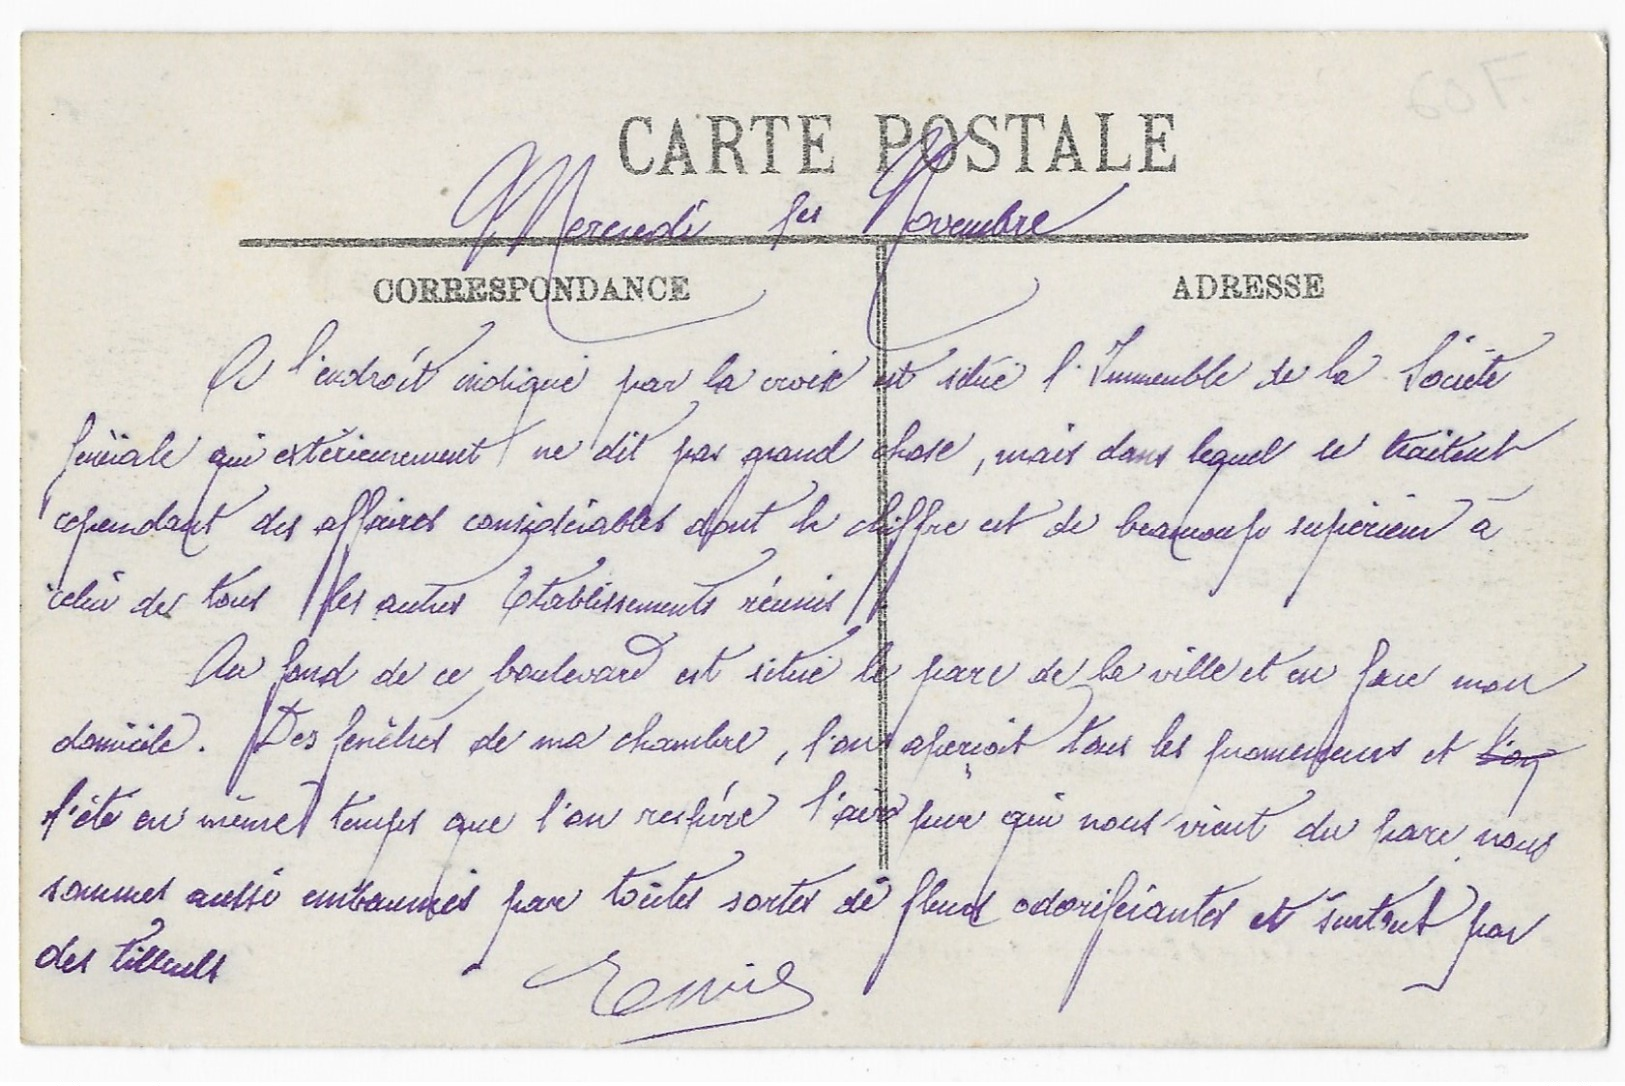 60F
CARTE POSTALE
Mercredi 1er Novembre
CORRESPONDANCE
ADRESSE
A l'endroit indiqué par la croix est situé l'Immeuble de la Société
Générale qui extérieurement ne dit pas grand chose, mais dans lequel se traitent
cependant des affaires considérables dont le chiffre est de beaucoup supérieur à
celui des tous les autres Etablissements réunis
Au fond de ce boulevard est situé le parc de la ville et en face mon
domicile. Des fenêtres de ma chambre, l'on aperçoit tous les promeneurs et l'on
l'été en même temps que l'on respire l'air pur qui nous vient du parc nous
sommes aussi embaumés par toutes sortes de fleurs odoriférantes et surtout par
des tilleuls